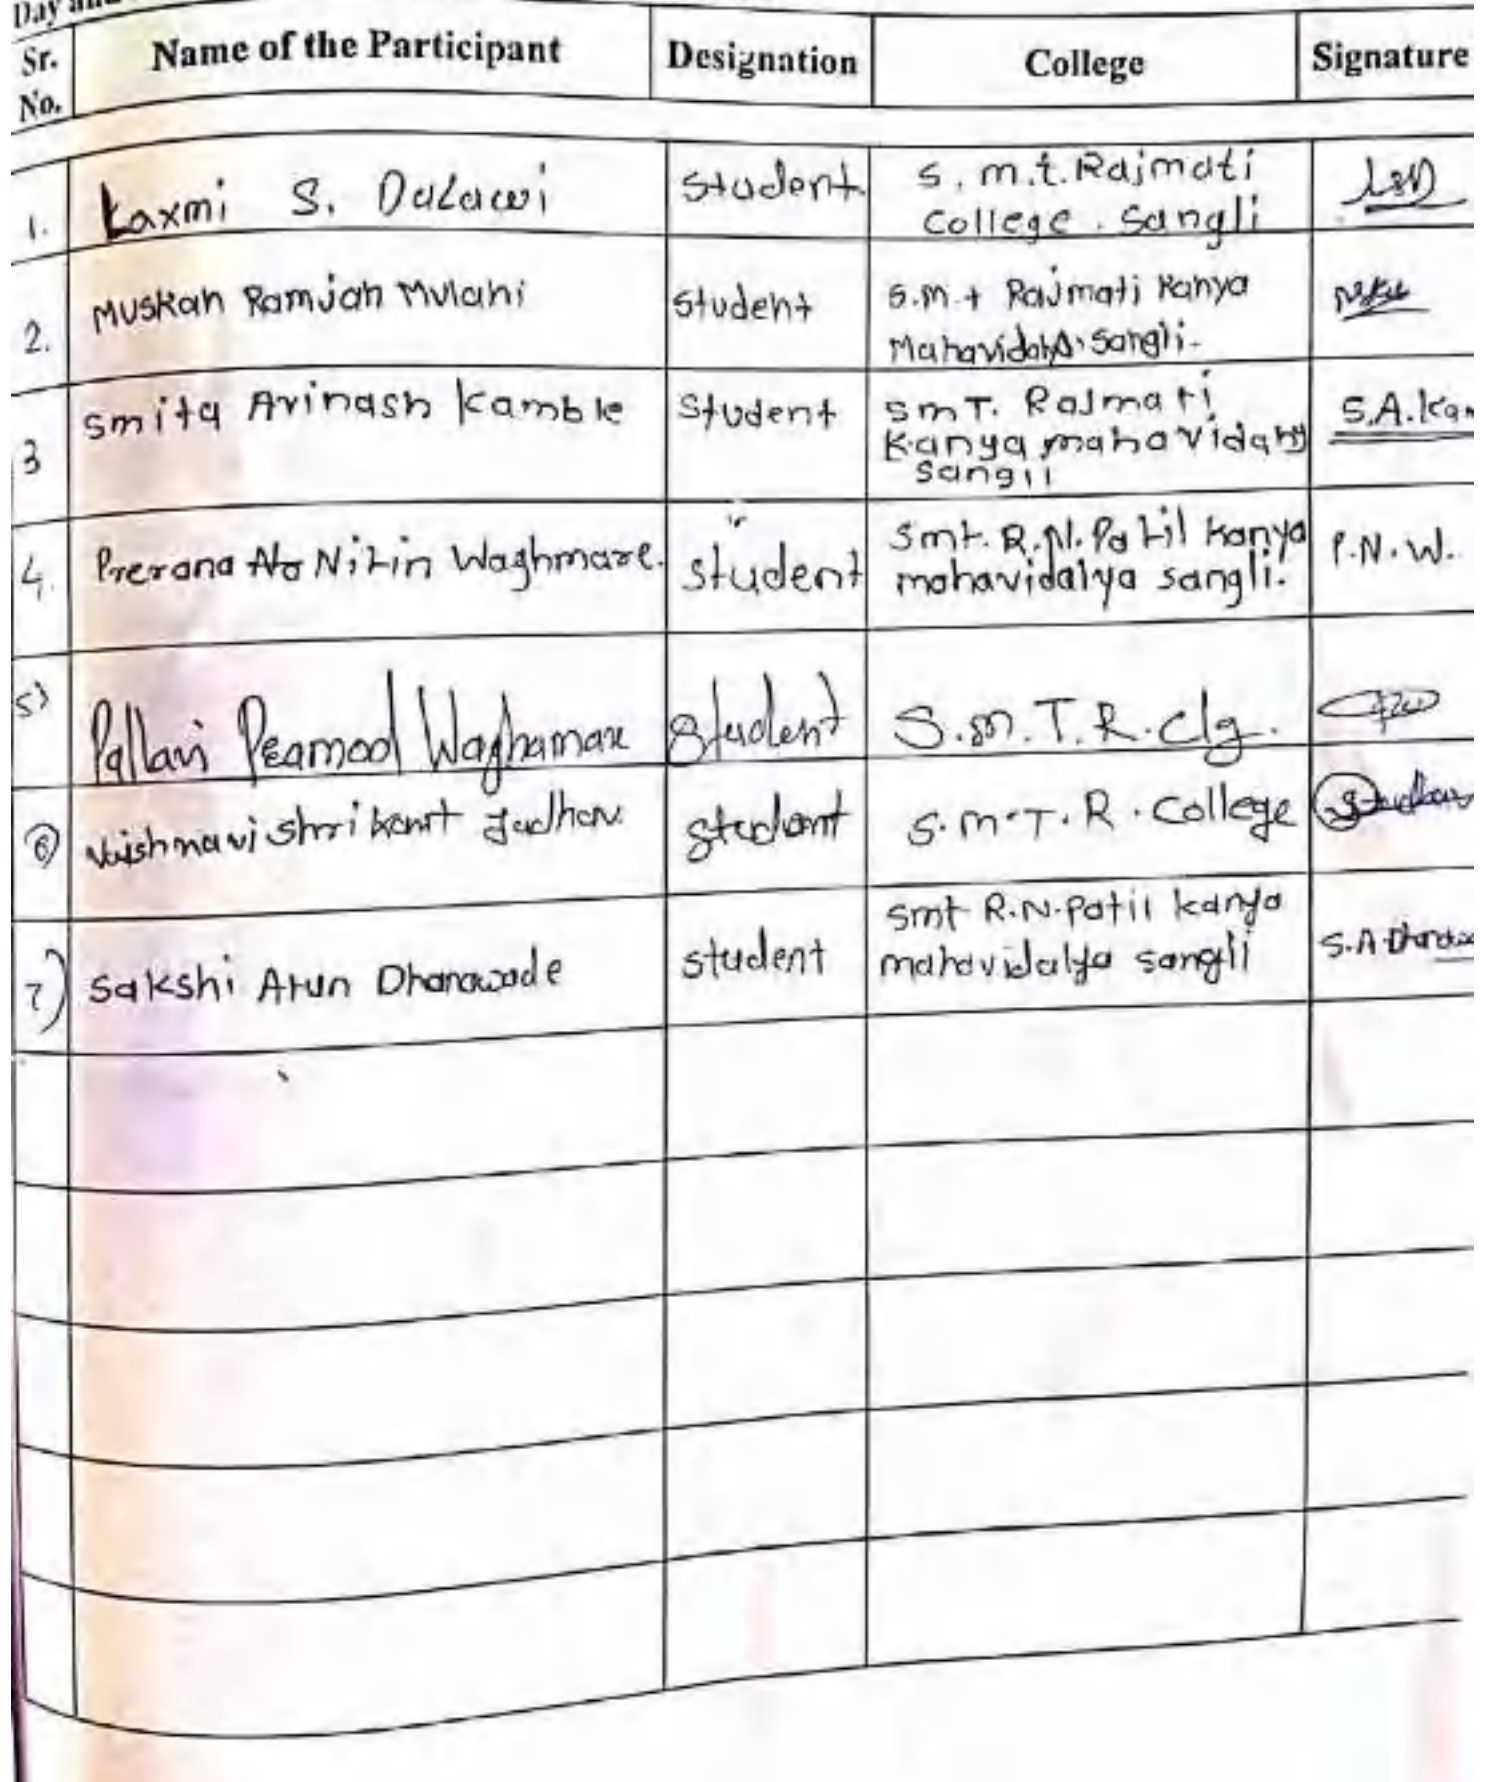 Day and
Sr. No. Name of the Participant Designation College Signature
1. Laxmi S. Dalawi Student S. m.t. Rajmati
College . Sangli
2. Muskan Ramjan Mulani Student S.m.t Rajmati Kanya
Sangli.
3 Smita Avinash Kamble Student SmT. Rajmati S.A.Kam
Kanya mahavidaly
Sangli
4. Prerana Nitin Waghmare. student Smt. R.N. Patil Kanya P.N.W.
mahavidalya sangli.
5) Pallavi Pramod Waghamare student S.m.T.R.clg.
6) Vaishnavi Shrikant Jadhav. student S.m.T.R. College
7) Sakshi Arun Dhanawade student Smt R.N.Patil kanya S.A Dhanawa
mahavidalya sangli